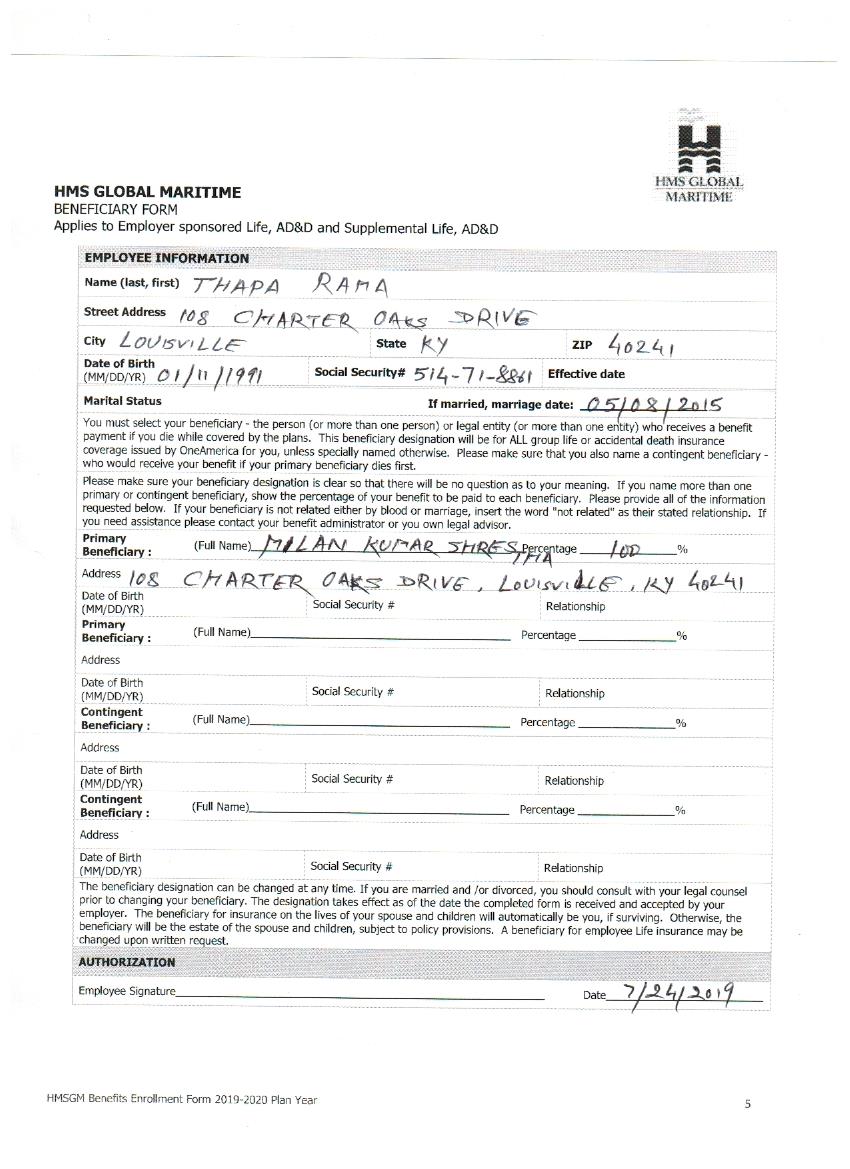 HMS GLOBAL
MARITIME
HMS GLOBAL MARITIME
BENEFICIARY FORM
Applies to Employer sponsored Life, AD&D and Supplemental Life, AD&D
EMPLOYEE INFORMATION
Name (last, first) THAPA RAMA
Street Address 108 CHARTER OAKS DRIVE
City LOUISVILLE State KY ZIP 40241
Date of Birth
(MM/DD/YR) 01/11/1991 Social Security# 514-71-8861 Effective date
Marital Status If married, marriage date: 05/08/2015
You must select your beneficiary - the person (or more than one person) or legal entity (or more than one entity) who receives a benefit
payment if you die while covered by the plans. This beneficiary designation will be for ALL group life or accidental death insurance
coverage issued by OneAmerica for you, unless specially named otherwise. Please make sure that you also name a contingent beneficiary -
who would receive your benefit if your primary beneficiary dies first.
Please make sure your beneficiary designation is clear so that there will be no question as to your meaning. If you name more than one
primary or contingent beneficiary, show the percentage of your benefit to be paid to each beneficiary. Please provide all of the information
requested below. If your beneficiary is not related either by blood or marriage, insert the word "not related" as their stated relationship. If
you need assistance please contact your benefit administrator or you own legal advisor.
Primary
Beneficiary : (Full Name) MILAN KUMAR SHRESTHA Percentage 100 %
Address 108 CHARTER OAKS DRIVE, LOUISVILLE, KY 40241
Date of Birth
(MM/DD/YR) Social Security # Relationship
Primary
Beneficiary : (Full Name) Percentage %
Address
Date of Birth
(MM/DD/YR) Social Security # Relationship
Contingent
Beneficiary : (Full Name) Percentage %
Address
Date of Birth
(MM/DD/YR) Social Security # Relationship
Contingent
Beneficiary : (Full Name) Percentage %
Address
Date of Birth
(MM/DD/YR) Social Security # Relationship
The beneficiary designation can be changed at any time. If you are married and /or divorced, you should consult with your legal counsel
prior to changing your beneficiary. The designation takes effect as of the date the completed form is received and accepted by your
employer. The beneficiary for insurance on the lives of your spouse and children will automatically be you, if surviving. Otherwise, the
beneficiary will be the estate of the spouse and children, subject to policy provisions. A beneficiary for employee Life insurance may be
changed upon written request.
AUTHORIZATION
Employee Signature Date 7/24/2019
HMSGM Benefits Enrollment Form 2019-2020 Plan Year 5